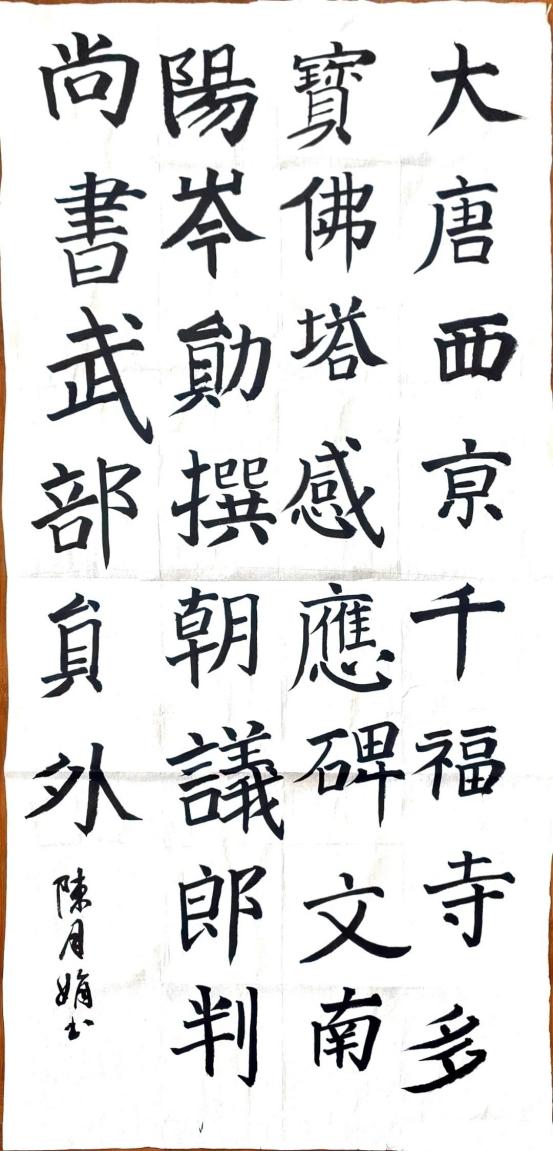 大唐西京千福寺多
寶佛塔感應碑文南
陽岑勛撰朝議郎判
尚書武部員外
陳月娟书